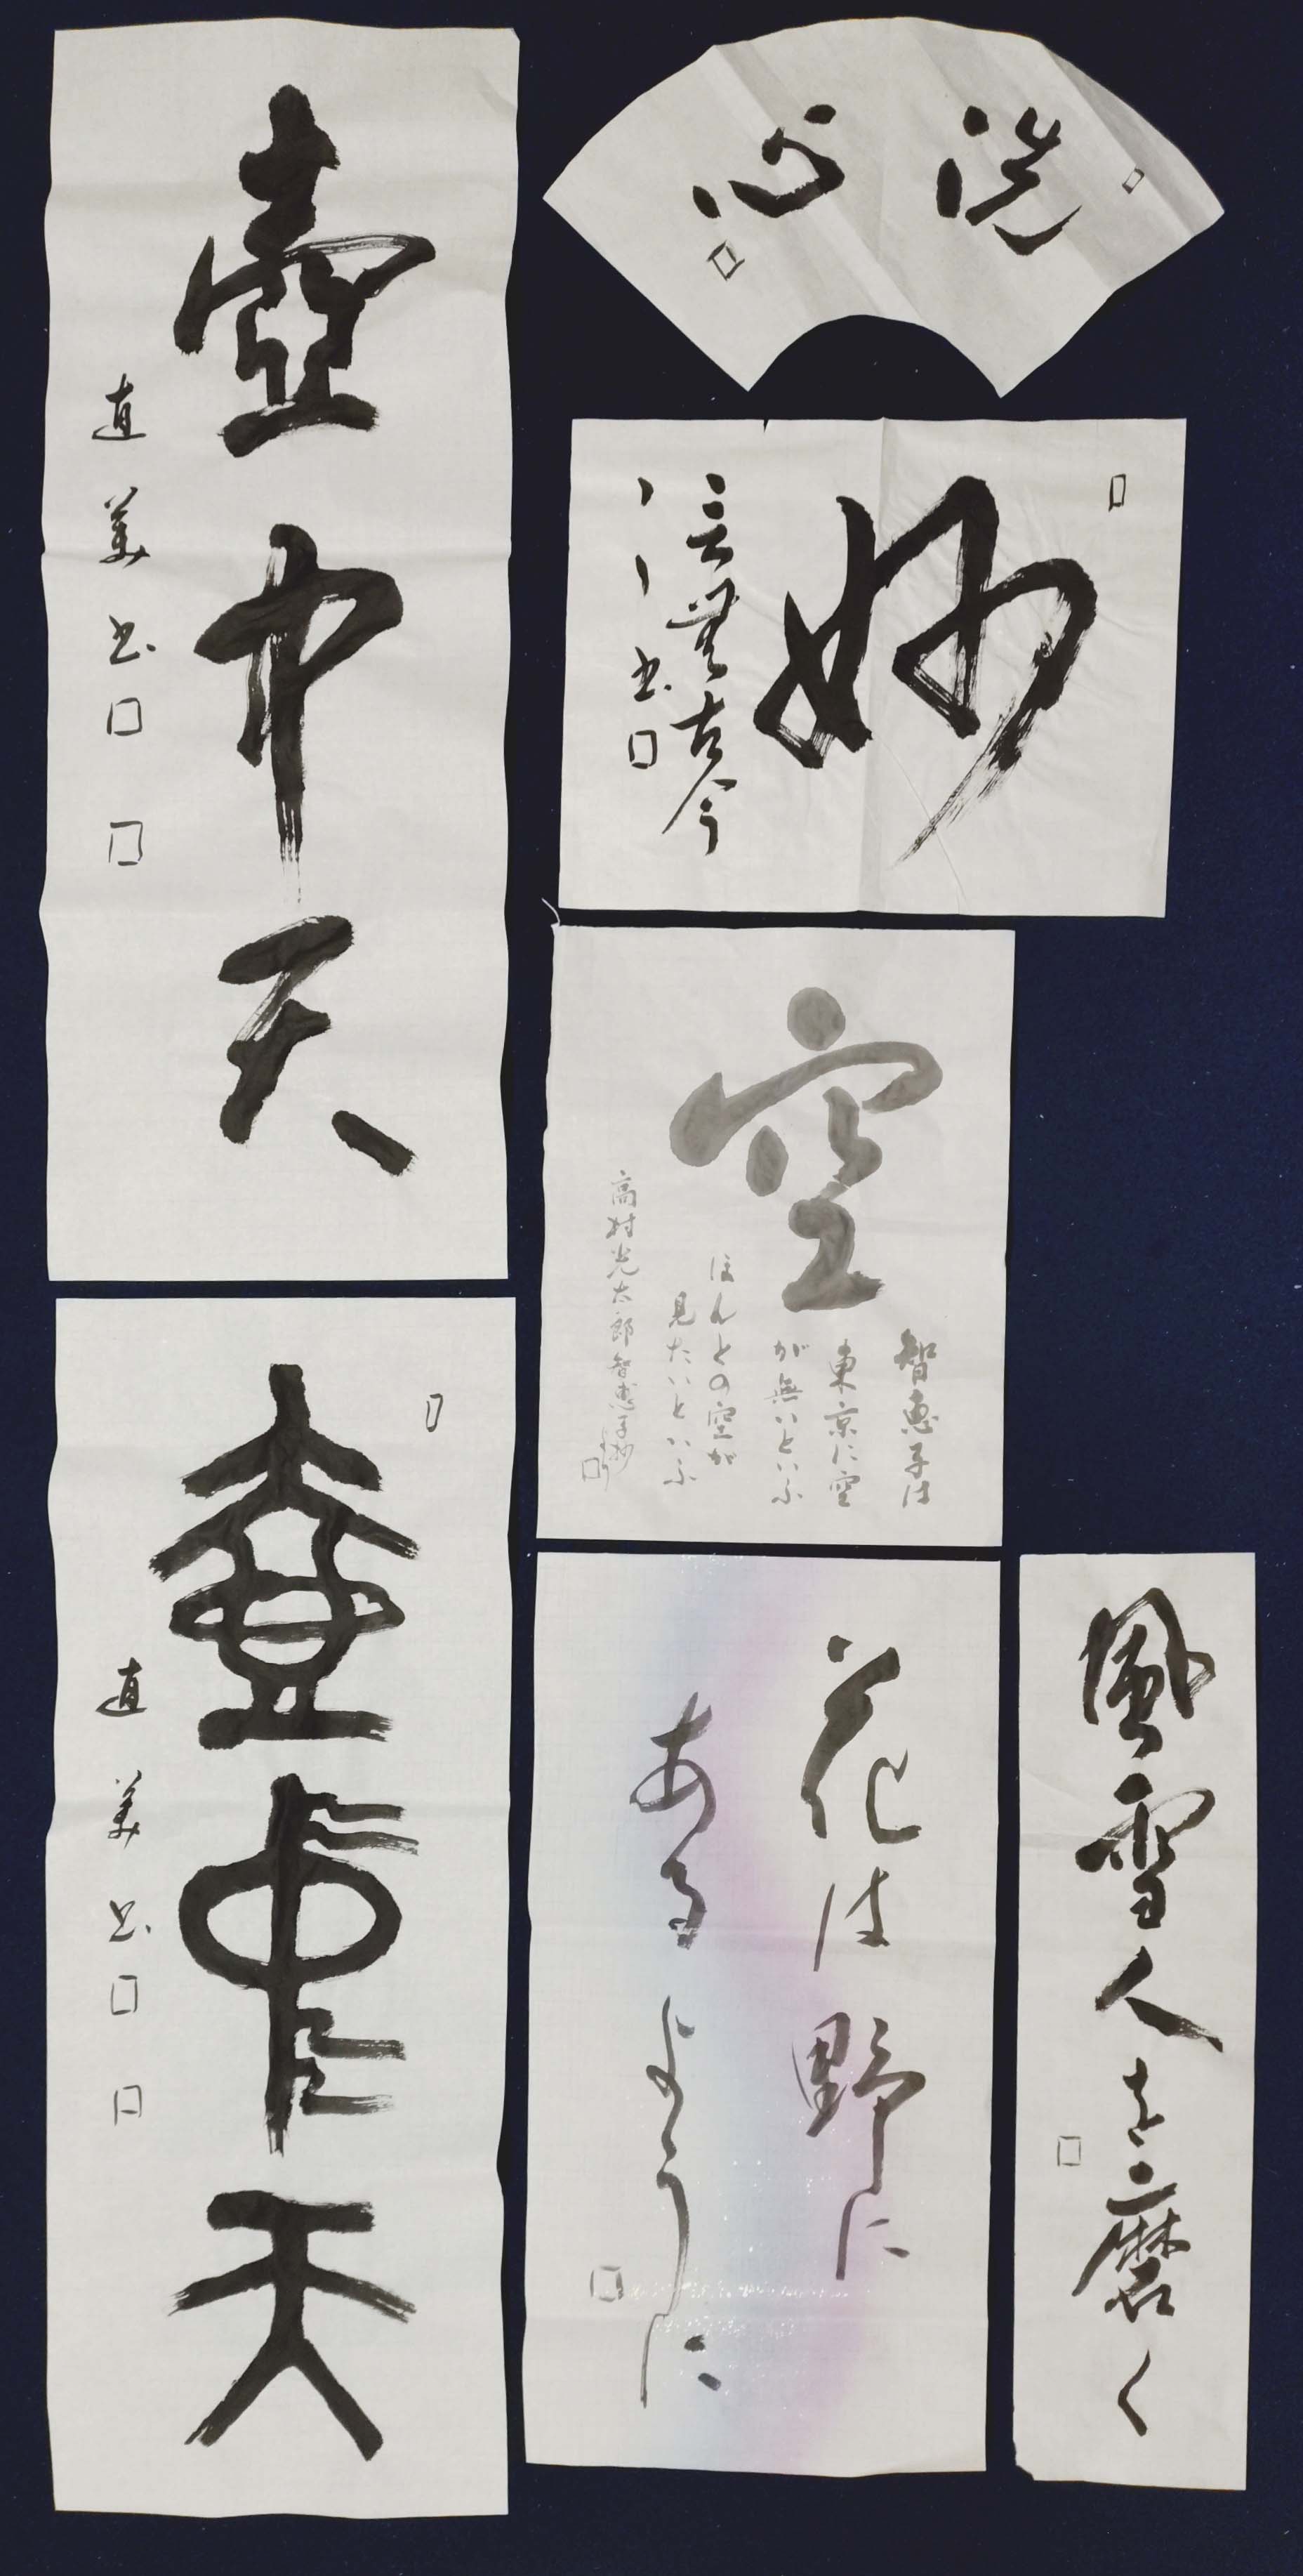 壺中天
直美書
壺中天
直美書
洗心
妙
云無古今
書
空
智恵子は
東京に空
が無いといふ
ほんとの空が
見たいといふ
高村光太郎智恵子抄
花は野に
あるように
風雪人を磨く